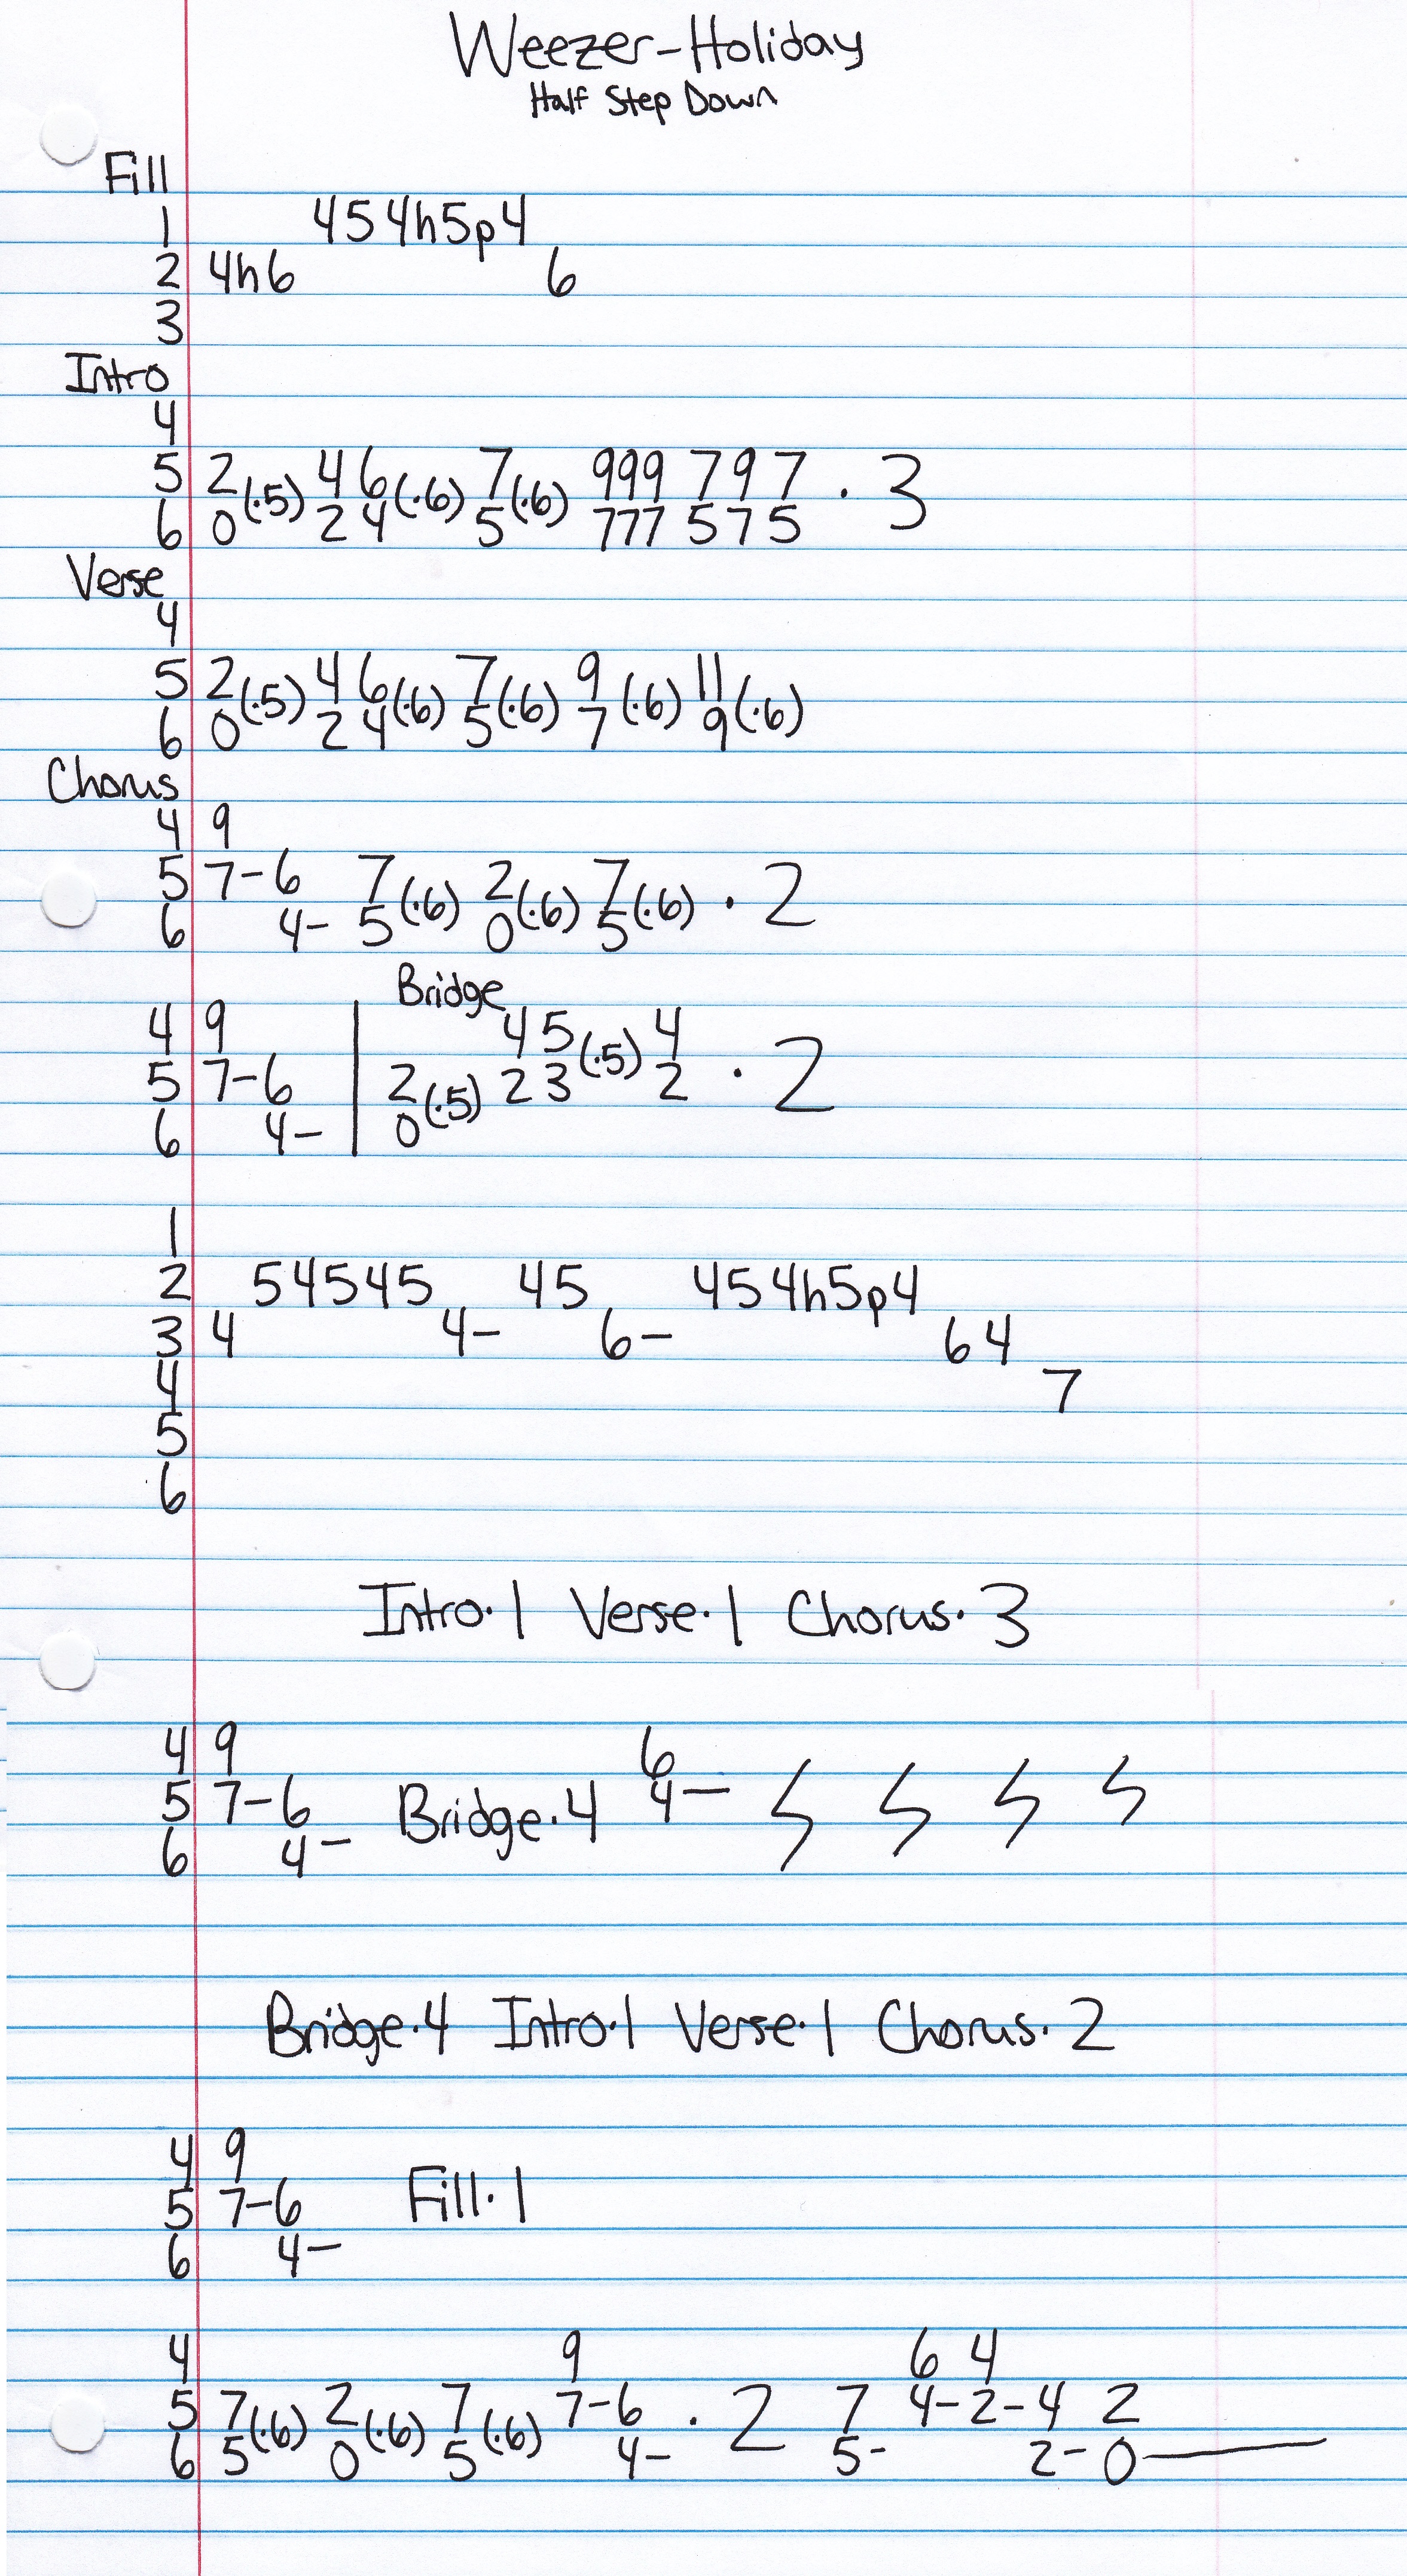 Weezer-Holiday
Half Step Down
Fill
1 454h5p4
2 4h6 6
3
Intro
4
5 2(·5) 4 6(·6) 7(·6) 999 7 9 7 · 3
6 0 2 4 5 777 5 7 5
Verse
4
5 2(·5) 4 6(·6) 7(·6) 9(·6) 11(·6)
6 0 2 4 5 7 9
Chorus
4 9
5 7-6 7(·6) 2(·6) 7(·6) · 2
6 4- 5 0 5
Bridge
4 9 | 4 5(·5) 4
5 7-6 | 2(·5) 2 3 2 · 2
6 4- | 0
1
2 54545 45 454h5p4
3 4 4- 6- 64
4 7
5
6
Intro·1 Verse·1 Chorus·3
4 9 6
5 7-6 Bridge·4 4-
6 4-
Bridge·4 Intro·1 Verse·1 Chorus·2
4 9
5 7-6 Fill·1
6 4-
4 9 6 4
5 7(·6) 2(·6) 7(·6) 7-6 · 2 7 4-2-4 2
6 5 0 5 4- 5- 2-0